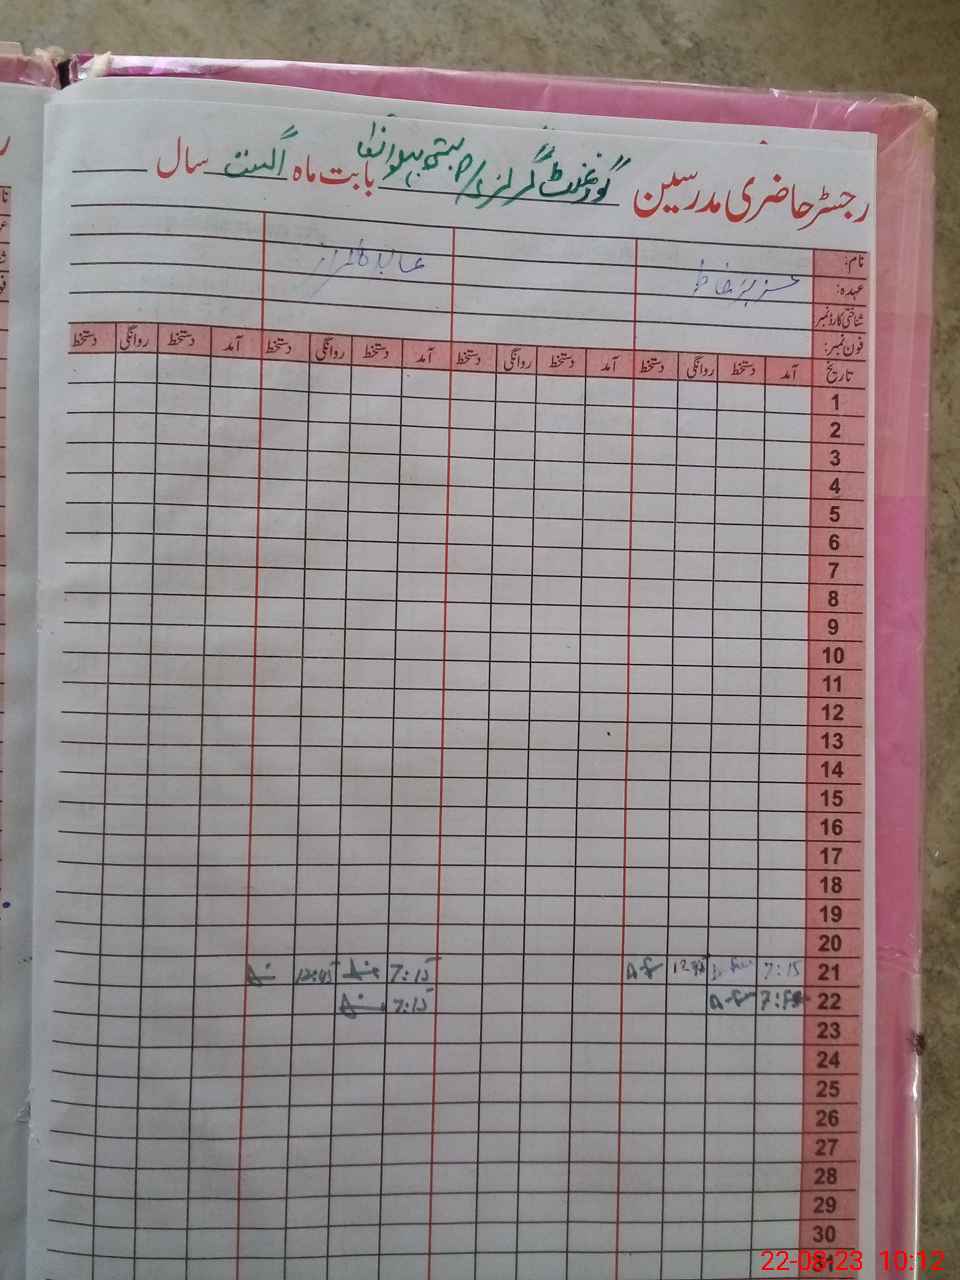 رجسٹر حاضری مدرسین گورنمنٹ گرلز بابت ماہ اگست سال
نام:
عہدہ:
شناختی کارڈ نمبر
فون نمبر:
تاریخ آمد دستخط روانگی دستخط آمد دستخط روانگی دستخط آمد دستخط روانگی دستخط آمد دستخط روانگی دستخط
1
2
3
4
5
6
7
8
9
10
11
12
13
14
15
16
17
18
19
20
21 7:15 12:45 7:15 12:45
22 7:15
23
24
25
26
27
28
29
30
31
22-08-23 10:12